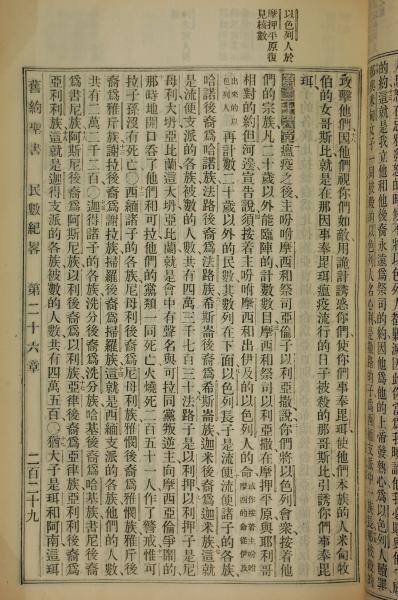 以色列人於
摩押平原復
見核數
攻擊他們因他們視你們如敵用詭計誘惑你們使你們事奉毘珥使他們本族的人米甸牧
伯的女哥斯比就是在那因事奉毘珥瘟疫流行的日子被殺的那哥斯比引誘你們事奉毘
珥
瘟疫之後主吩咐摩西和祭司亞倫子以利亞撒說你們將以色列會衆按着他
們的宗族凡二十歲以外能臨陣的計數數目摩西和祭司以利亞撒在摩押平原與耶利哥
相對的約但河邊宣告說須按着主吩咐摩西和出伊及的以色列人的命
再計數二十歲以外的民數其數列在下面以色列長子是流便流便諸子的各族
哈諾後裔爲哈諾族法路後裔爲法路族希斯崙後裔爲希斯崙族迦米後裔爲迦米族這就
是流便支派的各族被數的人數共有四萬三千七百三十法路子是以利押以利押子是尼
母利大坍亞比蘭這大坍亞比蘭就是會中有聲名與可拉同黨叛逆主向摩西亞倫爭鬧的
那時地開口吞了他們和可拉他們的黨類一同死亡火燒死二百五十人作了警戒惟可
拉子孫沒有死亡○西緬諸子的各族尼母利後裔爲尼母利族雅憫後裔爲雅憫族雅斤後
裔爲雅斤族謝拉後裔爲謝拉族掃羅後裔爲掃羅族這就是西緬支派的各族他們的人數
共有二萬二千二百○迦得諸子的各族洗分後裔爲洗分族哈基後裔爲哈基族書尼後裔
爲書尼族阿斯尼後裔爲阿斯尼族以利後裔爲以利族亞律後裔爲亞律族亞利利後裔爲
亞利利族這就是迦得支派的各族被數的人數共有四萬五百○猶大子是珥和阿南這珥
舊約聖書 民數紀畧 第二十六章 二百二十九